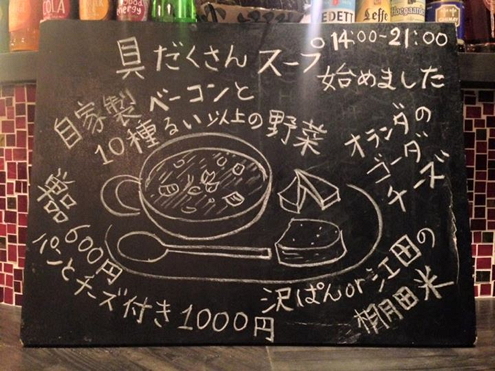 Leffe
Hoegaarden
14:00~21:00
具だくさんスープ
始めました
自家製ベーコンと
10種るい以上の野菜
オランダの
ゴーダ
チーズ
単品
600円
パンとチーズ付き1000円
沢ぱんor江田の
棚田米